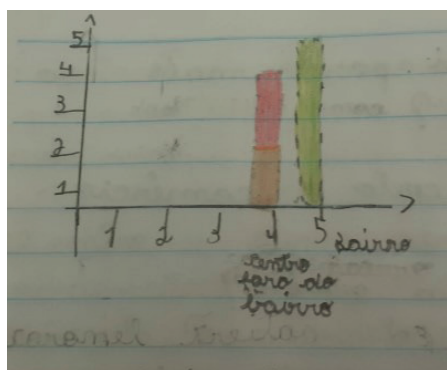 5
4
3
2
1
1 2 3 4 5 bairro
centro
fora do
bairro